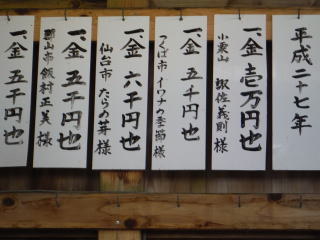 平成二十七年
一、金 壱万円也
小栗山 諏佐義則 様
一、金 五千円也
つくば市 イワナの季節 様
一、金 六千円也
仙台市 たらの芽 様
一、金 五千円也
郡山市 飯村正美 様
一、金 五千円也